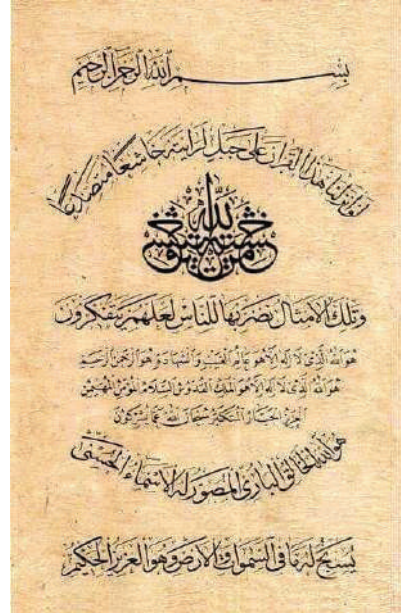 بسم الله الرحمن الرحيم
لو انزلنا هذا القران على جبل لرايته خاشعا متصدعا
من خشية الله
وتلك الامثال نضربها للناس لعلهم يتفكرون
هو الله الذي لا اله الا هو عالم الغيب والشهادة هو الرحمن الرحيم
هو الله الذي لا اله الا هو الملك القدوس السلام المؤمن المهيمن
العزيز الجبار المتكبر سبحان الله عما يشركون
هو الله الخالق البارئ المصور له الاسماء الحسنى
يسبح له ما في السموات والارض وهو العزيز الحكيم